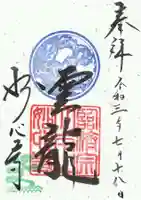 奉拝 令和三年七月十八日
雲龍
妙心寺